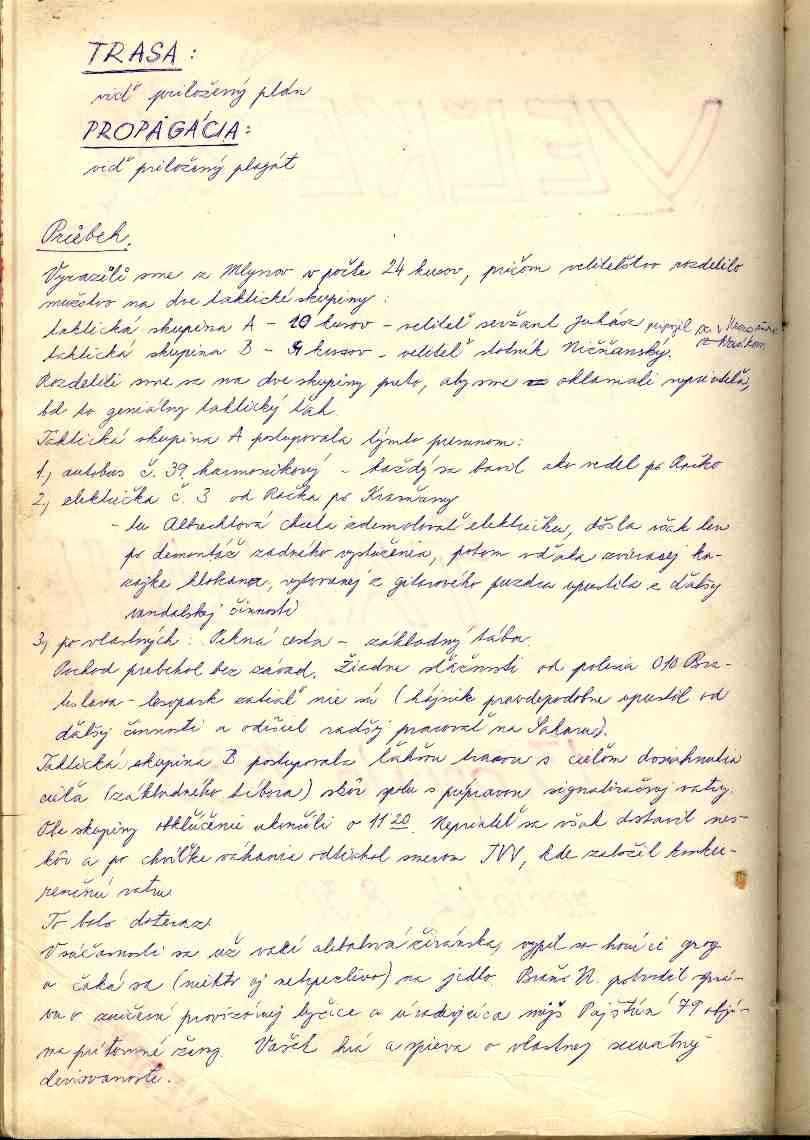 TRASA:
viď priložený plán
PROPAGÁCIA:
viď priložený plagát
Priebeh.
Vyrazili sme z Mlynov v počte 24 kusov, pričom veliteľstvo rozdelilo
mužstvo na dve taktické skupiny:
taktická skupina A - 20 kusov - veliteľ seržant Juhász pripojil sa v
taktická skupina B - 4 kusov - veliteľ stotník Ničňanský.
Rozdelili sme sa na dve skupiny preto, aby sme oklamali nepriateľa,
bol to geniálny taktický ťah.
Taktická skupina A postupovala týmto presunom:
1, autobus č. 39, harmonikový - každý sa bavil ako vedel po Račko
2, električka č. 3 od Račka po Krasňany
- tu Albrechtová chcela zdemolovať električku, došla však len
po demontáž zadného vysvetlenia, potom vďaka
klokana, vytvorenej z gitarového puzdra upustila z ďalšej
vandalskej činnosti
3, po vlastných: Pekná cesta - základný tábor.
Pochod prebehol bez závad. Žiadne sťažnosti od polesia 010 Bra-
tislava - lesopark zatiaľ nie sú (hájnik pravdepodobne upustil od
ďalšej činnosti a odišiel radšej pracovať na Saharu).
Taktická skupina B postupovala ľahšou trasou s cieľom dosiahnutia
cieľa (základného tábora) skôr spolu s prípravou signalizačnej vatry.
Obe skupiny obkľúčenie ukončili o 11 20. Nepriateľ sa však dostavil nes-
kôr a po chvíľke váhania odtiahol smerom TVV, kde založil konku-
renčnú vatru.
To bolo doteraz.
V súčasnosti sa už varí, vypil sa horúci grog
a čaká sa (niektorí aj netrpezlivo) na jedlo. Braňo N. potvrdil sprá-
vu o zničení provizórnej lyžice a úradujúca miss Pajštún 79 objí-
ma prítomné ženy. Vašek hrá a spieva o vlastnej sexuálnej